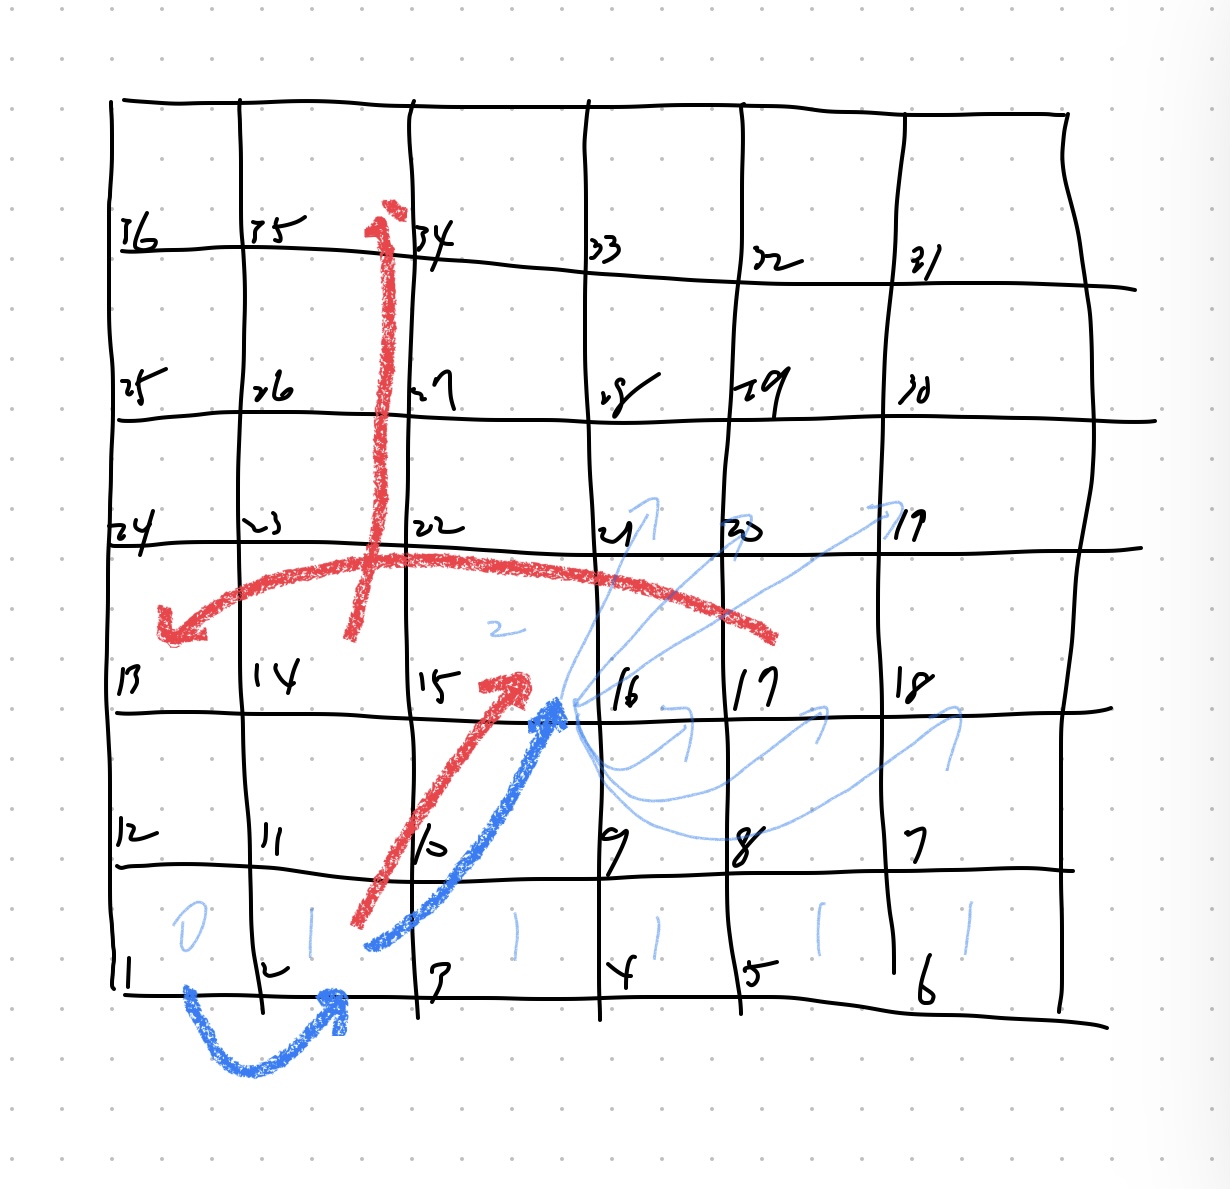 36 35 34 33 32 31
25 26 27 28 29 30
24 23 22 21 20 19
2
13 14 15 16 17 18
12 11 10 9 8 7
0 1 1 1 1 1
1 2 3 4 5 6